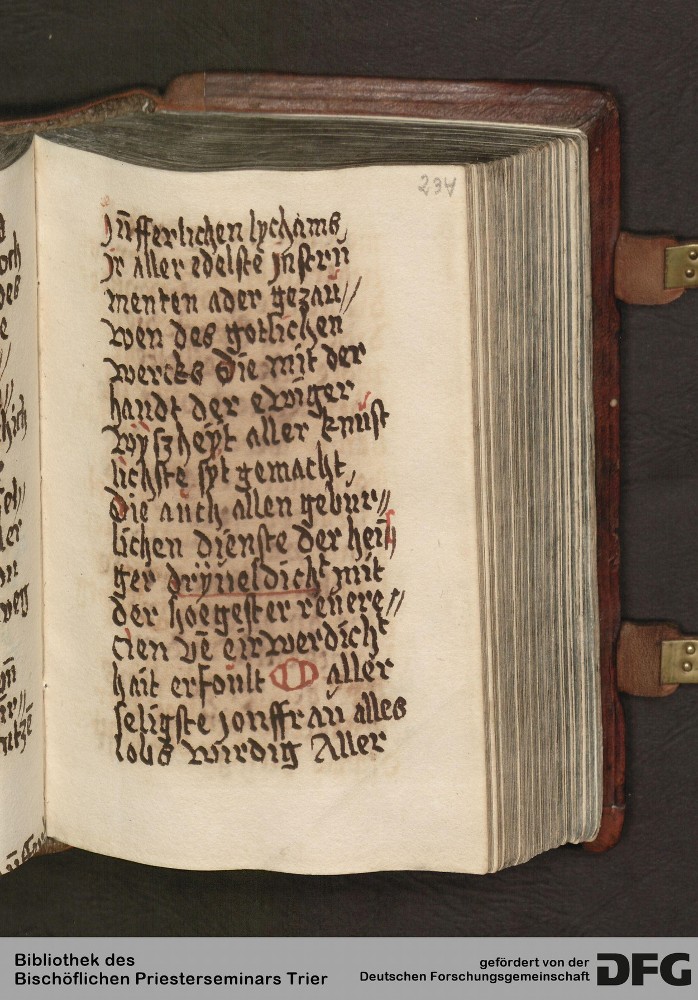 234
jūfferlichen lychams
jr aller edelste jnstru
menten ader gezau//
wen des gotlichen
wercks Die mit der
handt der ewiger
wyszheyt aller knust
lichste syt gemacht,
Die auch allen gebur//
lichen dienste der heili
ger dryueldicht mit
der hoegester reuere//
cien vē eirwerdicht
hait erfoult O aller
seligste jonffrau alles
lobs wirdig Aller
Bibliothek des
Bischöflichen Priesterseminars Trier
gefördert von der
Deutschen Forschungsgemeinschaft
DFG